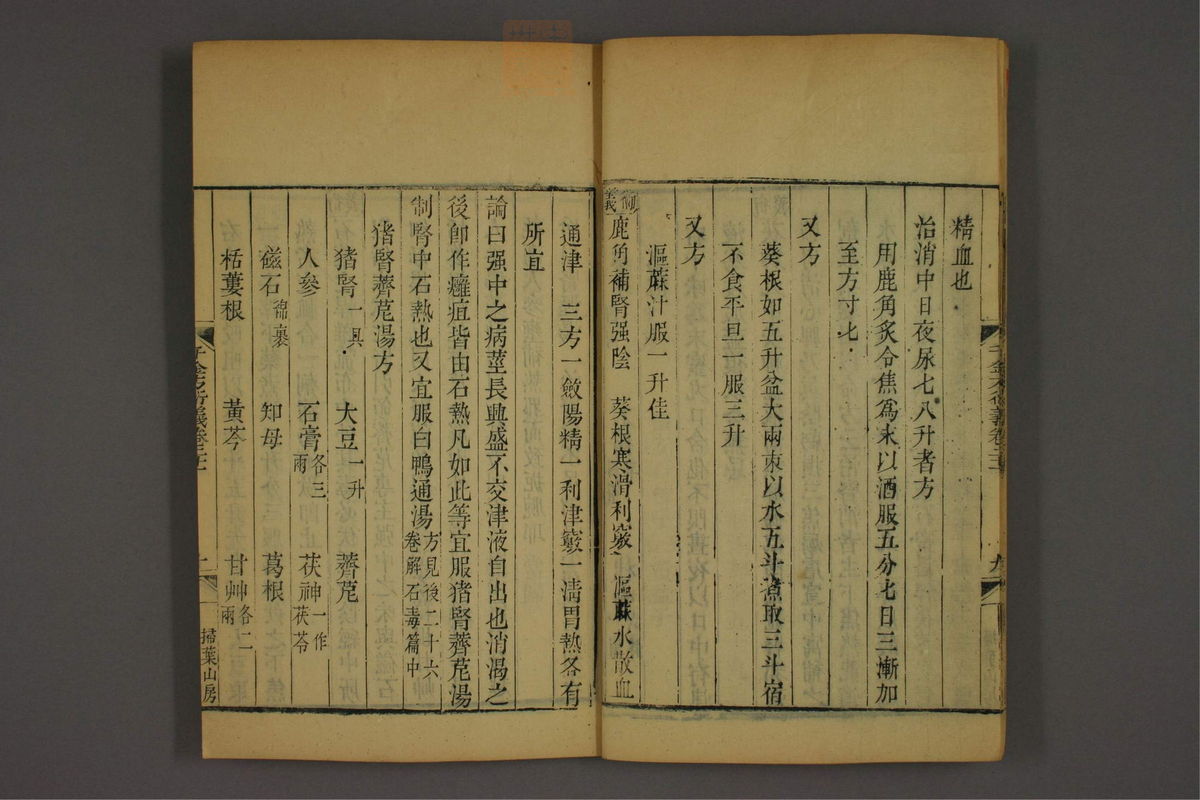 精血也
治消中日夜尿七八升者方
用鹿角炙令焦爲末以酒服五分匕日三漸加
至方寸匕
又方
葵根如五升盆大兩束以水五斗煮取三斗宿
不食平旦一服三升
又方
漚蔴汁服一升佳
衍義鹿角補腎强陰 葵根寒滑利竅 漚蔴水散血
通津 三方一斂陽精一利津竅一淸胃熱各有
所宜
論曰强中之病莖長興盛不交津液自出也消渴之
後卽作癰疽皆由石熱凡如此等宜服猪腎薺苨湯
制腎中石熱也又宜服白鴨通湯方見後二十六卷解石毒篇中
猪腎薺苨湯方
猪腎一具 大豆一升 薺苨
人參 石膏各三兩 茯神一作茯苓
磁石綿裹 知母 葛根
栝蔞根 黃芩 甘艸各二兩
千金方衍義卷二十一
掃葉山房